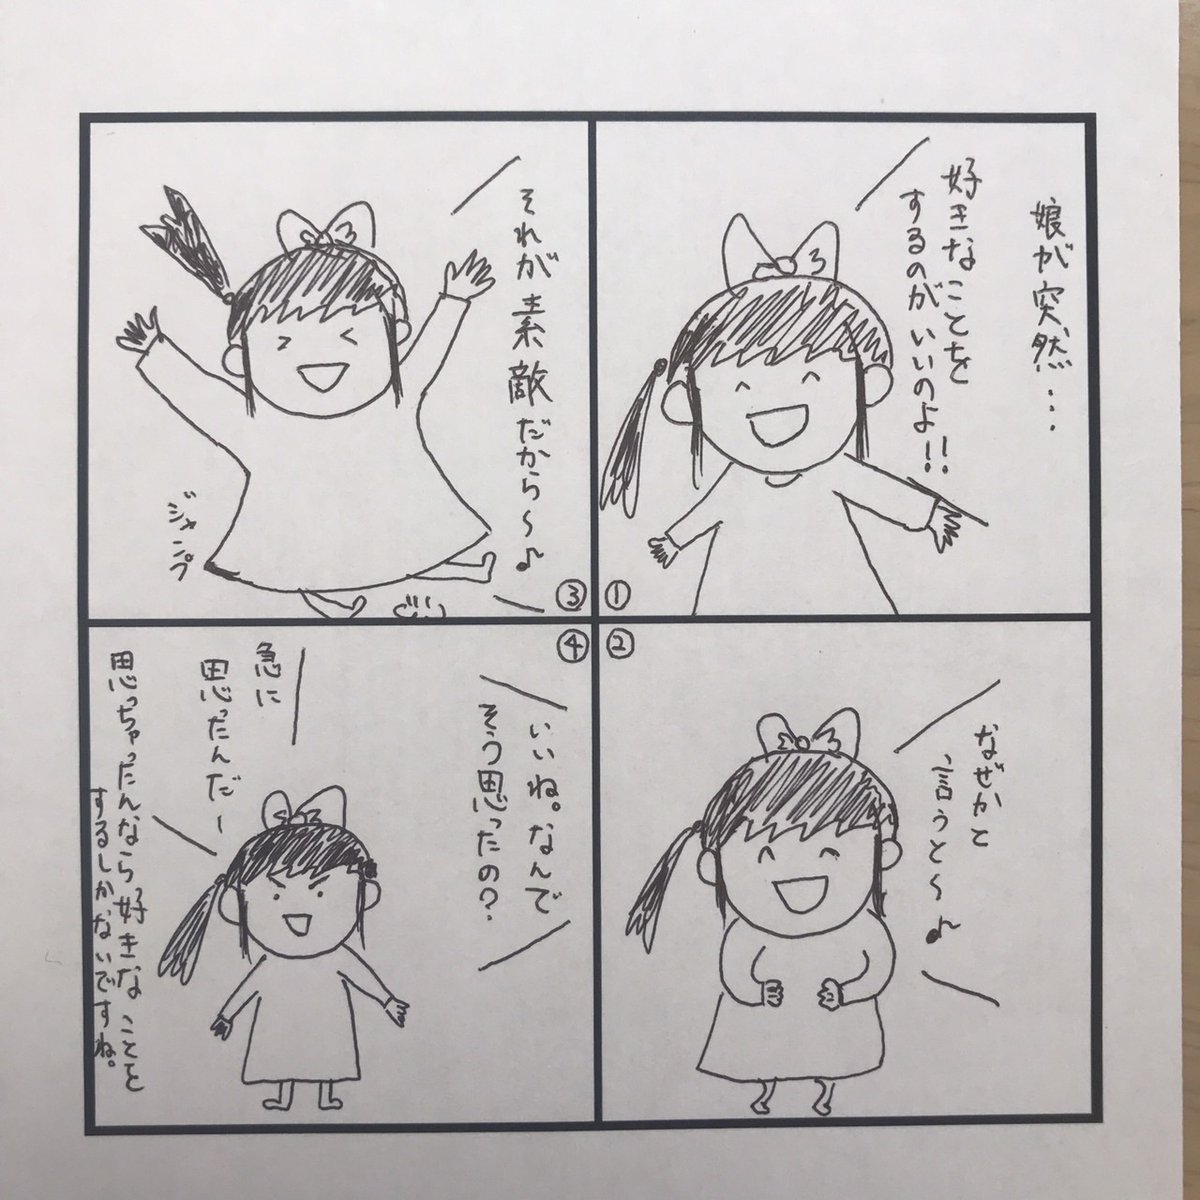 娘が突然…
好きなことを
するのがいいのよ!!
①
②
なぜかと
言うと〜♪
それが素敵だから〜♪
ジャンプ
③
④
いいね。なんで
そう思ったの?
急に
思ったんだー
思っちゃったんなら好きなことを
するしかないですね。